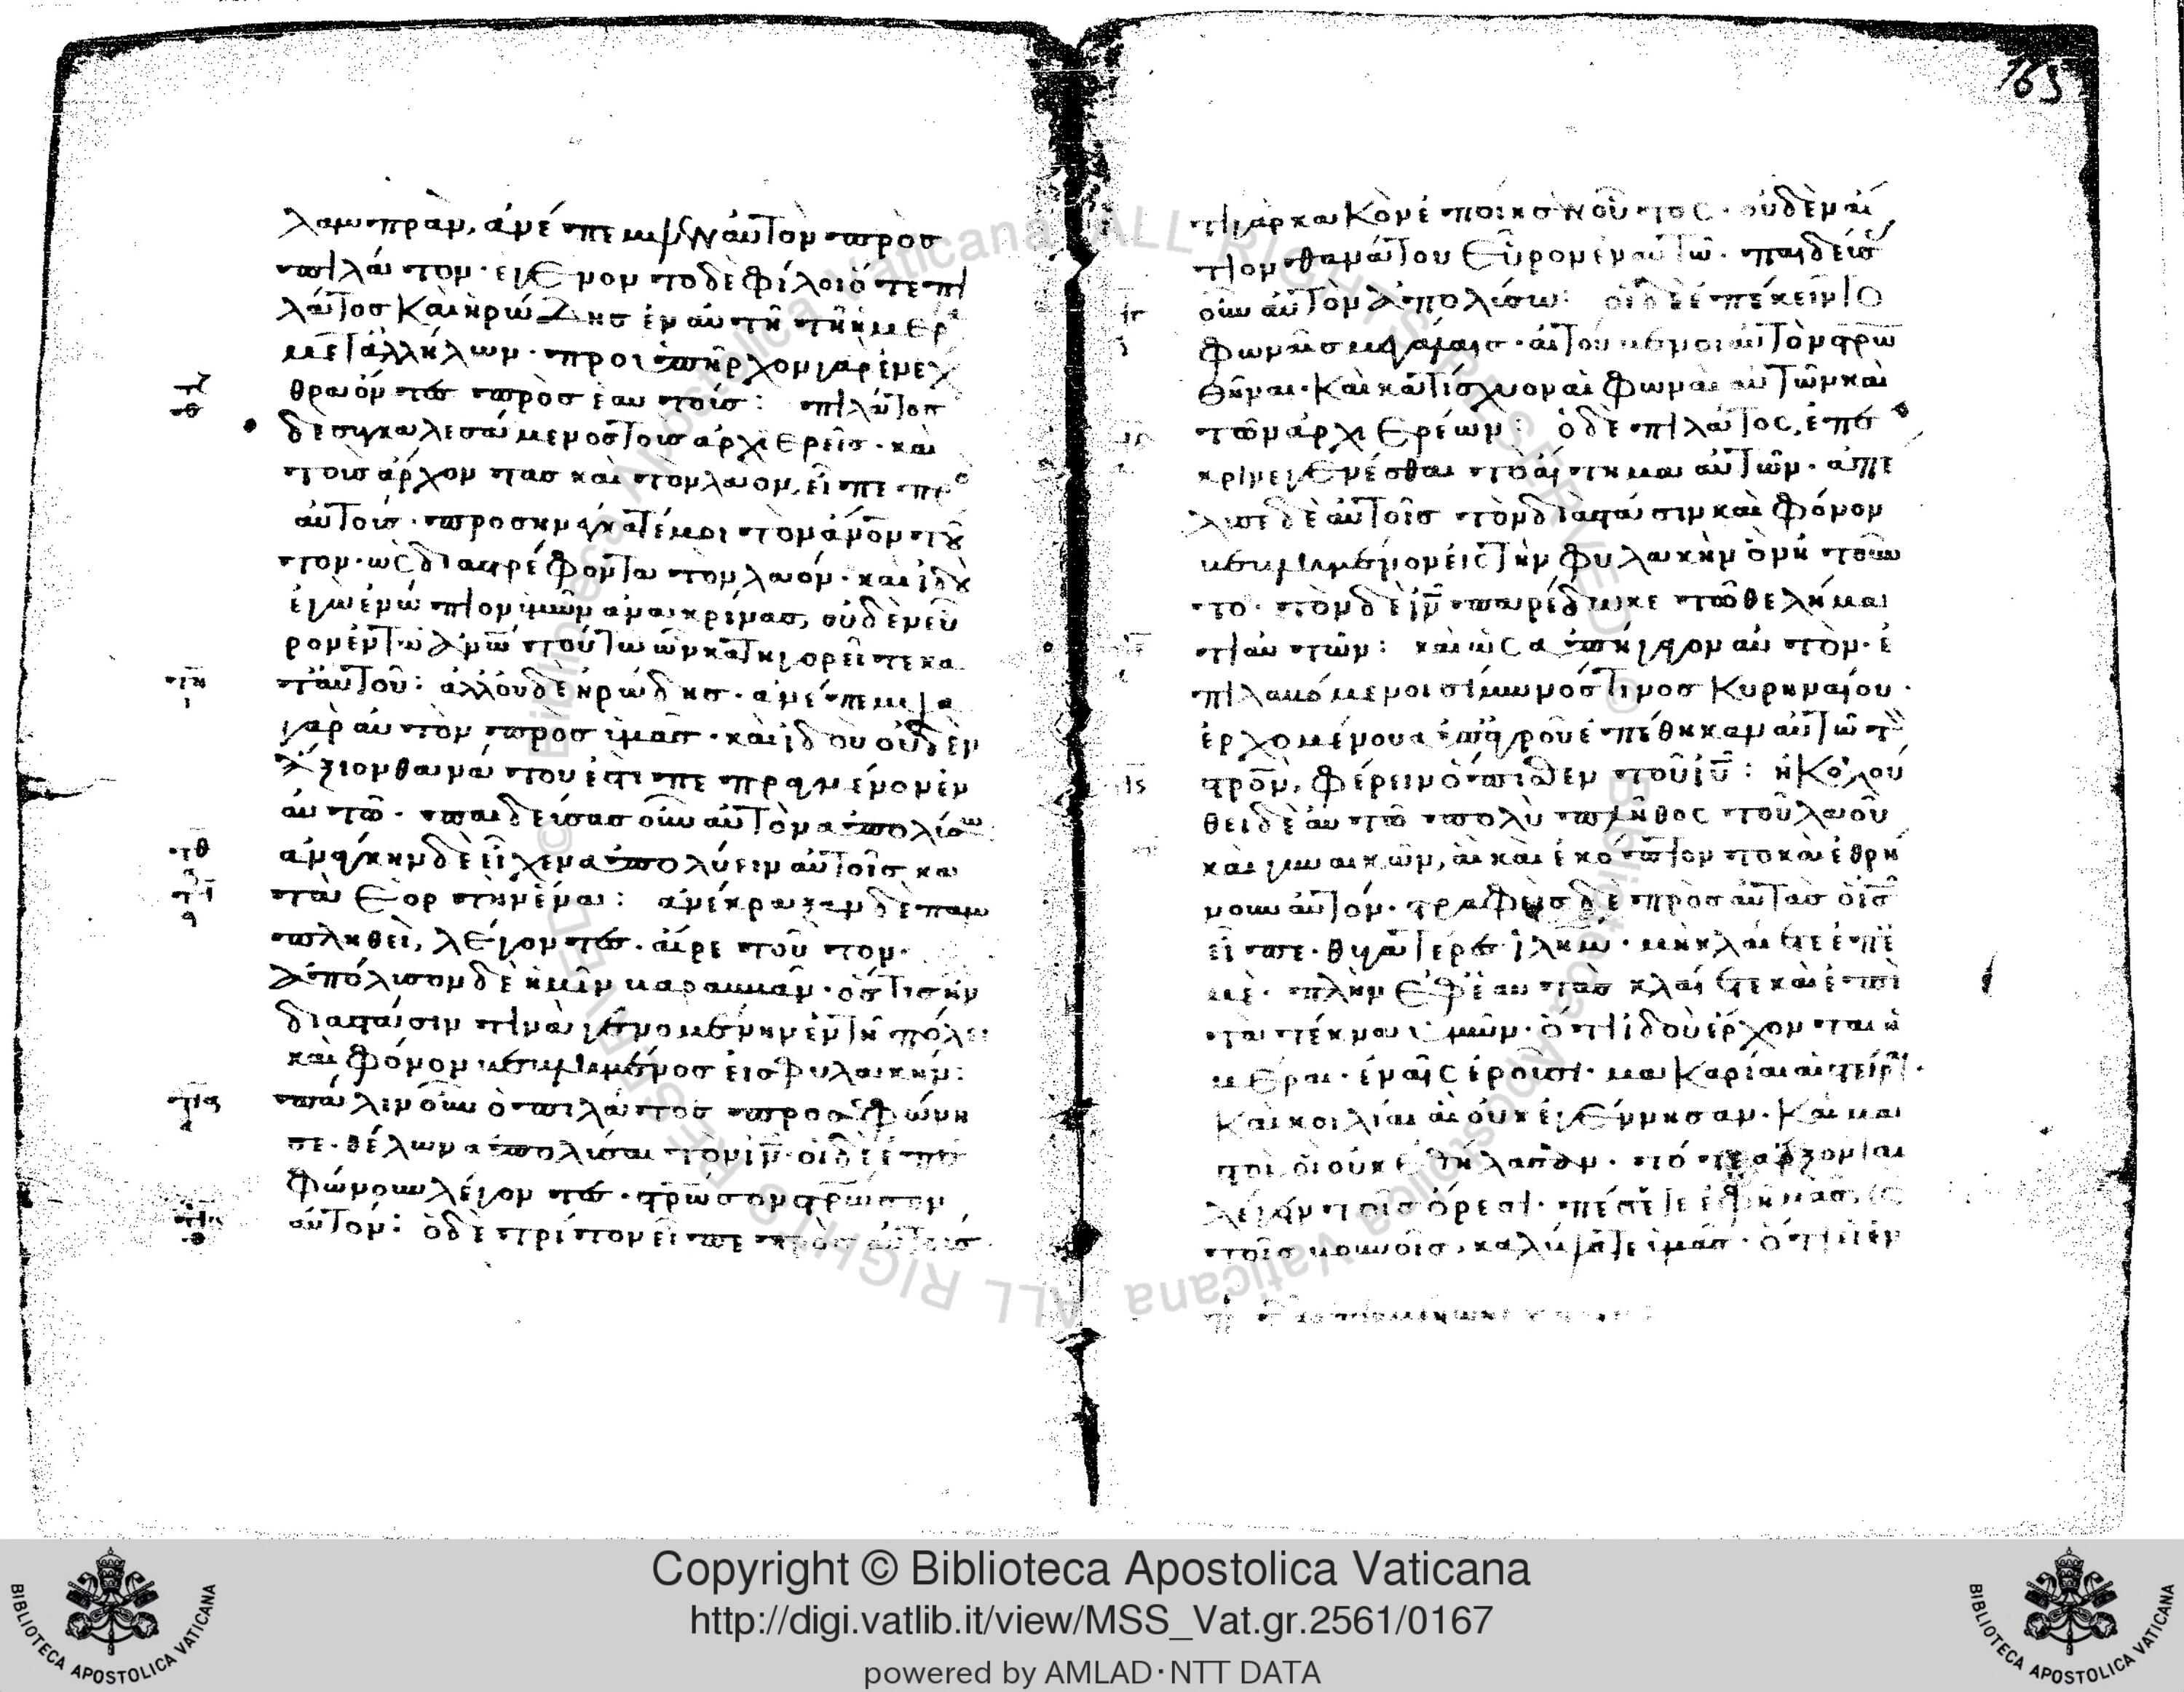 λαμπρὰν, ἀνέπεμψεν αὐτὸν πρὸσ
πιλάτον· ἐγένοντο δὲ φίλοι ὅ τε πι
λάτοσ καὶ ἡρώδησ ἐν αὐτῆ τῆ ἡμέρα
μετ ἀλλήλων· προϋπῆρχον γὰρ ἐν ἔχ
θρα ὄντεσ πρὸσ ἑαυτούσ: πιλᾶτοσ
δὲ συγκαλεσάμενοσ τοὺσ ἀρχιερεῖσ· καὶ
τοὺσ ἄρχοντασ καὶ τὸν λαὸν, εἶπε πρὸ
αὐτούσ· προσηνέγκατέ μοι τὸν ἀνον τοῦ
τον· ὡσ διαστρέφοντα τὸν λαόν· καὶ ἰδοὺ
ἐγὼ ἐνώπιον ὑμῶν ἀνακρίνασ, οὐδὲν εὗ
ρον ἐν τῶ ἀνω τούτω ὧν κατηγορεῖτε κα
τ αὐτοῦ: ἀλλ οὐδὲ ἡρώδησ· ἀνέπεμψα
γὰρ αὐτὸν πρὸσ ὑμᾶσ· καὶ ἰδοὺ οὐδὲν
ἄξιον θανάτου ἐστι πεπραγμένον ἐν
αὐτῶ· παιδεύσασ οὖν αὐτὸν ἀπολύσω
ἀνάγκην δὲ εἶχεν ἀπολύειν αὐτοῖσ κα
τὰ ἑορτὴν ἕνα: ἀνέκραξαν δὲ παμ
πληθεὶ, λέγοντεσ· αἶρε τοῦτον·
ἀπόλυσον δὲ ἡμῖν βαραββᾶν· ὅστισ ἦν
διὰ στάσιν τινὰ γενομένην ἐν τῆ πόλει
καὶ φόνον βεβλημένοσ εἰσ φυλακήν:
πάλιν οὖν ὁ πιλάτοσ προσεφώνη
σε· θέλων ἀπολῦσαι τὸν ιν· οἱ δὲ ἐπε
φώνουν λέγοντεσ· στρωσον στρωσον
αὐτόν: ὁ δὲ τρίτον εἶπε πρὸσ αὐτούσ
τί γὰρ κακὸν ἐποίησεν οὗτος· οὐδὲν αἴ
τιον θανάτου εὗρον ἐν αὐτῶ· παιδεύσ
οὖν αὐτὸν ἀπολύσω: οἱ δὲ ἐπέκειντο
φωναῖσ μεγάλαισ· αἰτούμενοι αὐτὸν στρω
θῆναι· καὶ κατίσχυον αἱ φωναὶ αὐτῶν καὶ
τῶν ἀρχιερέων: ὁ δὲ πιλάτος, ἐπέ
κρινε γενέσθαι τὸ αἴτημα αὐτῶν· ἀπέ
λυσε δὲ αὐτοῖσ τὸν διὰ στάσιν καὶ φόνον
βεβλημένον εἰς τὴν φυλακὴν ὃν ἠτοῦν
το· τὸν δὲ ιν παρέδωκε τῶ θελήμα
τι αὐτῶν: καὶ ὡς ἀπήγαγον αὐτὸν· ἐ
πιλαβόμενοι σίμωνόσ τινοσ κυρηναίου·
ἐρχομένου ἀπ ἀγροῦ ἐπέθηκαν αὐτῶ τὸ
στρον, φέρειν ὄπισθεν τοῦ ιυ: ἠκολού
θει δὲ αὐτῶ πολὺ πλῆθος τοῦ λαοῦ
καὶ γυναικῶν, αἳ καὶ ἐκόπτοντο καὶ ἐθρή
νουν αὐτόν· στραφεὶσ δὲ πρὸσ αὐτὰσ ὁ ισ
εἶπε· θυγατέρεσ ιλημ· μὴ κλαίετε ἐπ ἐ
μὲ· πλὴν ἐφ ἑαυτὰσ κλαίετε καὶ ἐπὶ
τὰ τέκνα ὑμῶν· ὅτι ἰδοὺ ἔρχονται ἡ
μέραι· ἐν αἷς ἐροῦσι· μακάριαι αἱ στεῖραι·
καὶ κοιλίαι αἳ οὐκ ἐγέννησαν· καὶ μα
στοὶ οἳ οὐκ ἐθήλασαν· τότε ἄρξονται
λέγειν τοῖσ ὄρεσι· πέσετε ἐφ ἡμᾶσ,
τοῖσ βουνοῖσ, καλύψατε ἡμᾶσ· ὅτι εἰ ἐν
Copyright © Biblioteca Apostolica Vaticana
http://digi.vatlib.it/view/MSS_Vat.gr.2561/0167
powered by AMLAD·NTT DATA